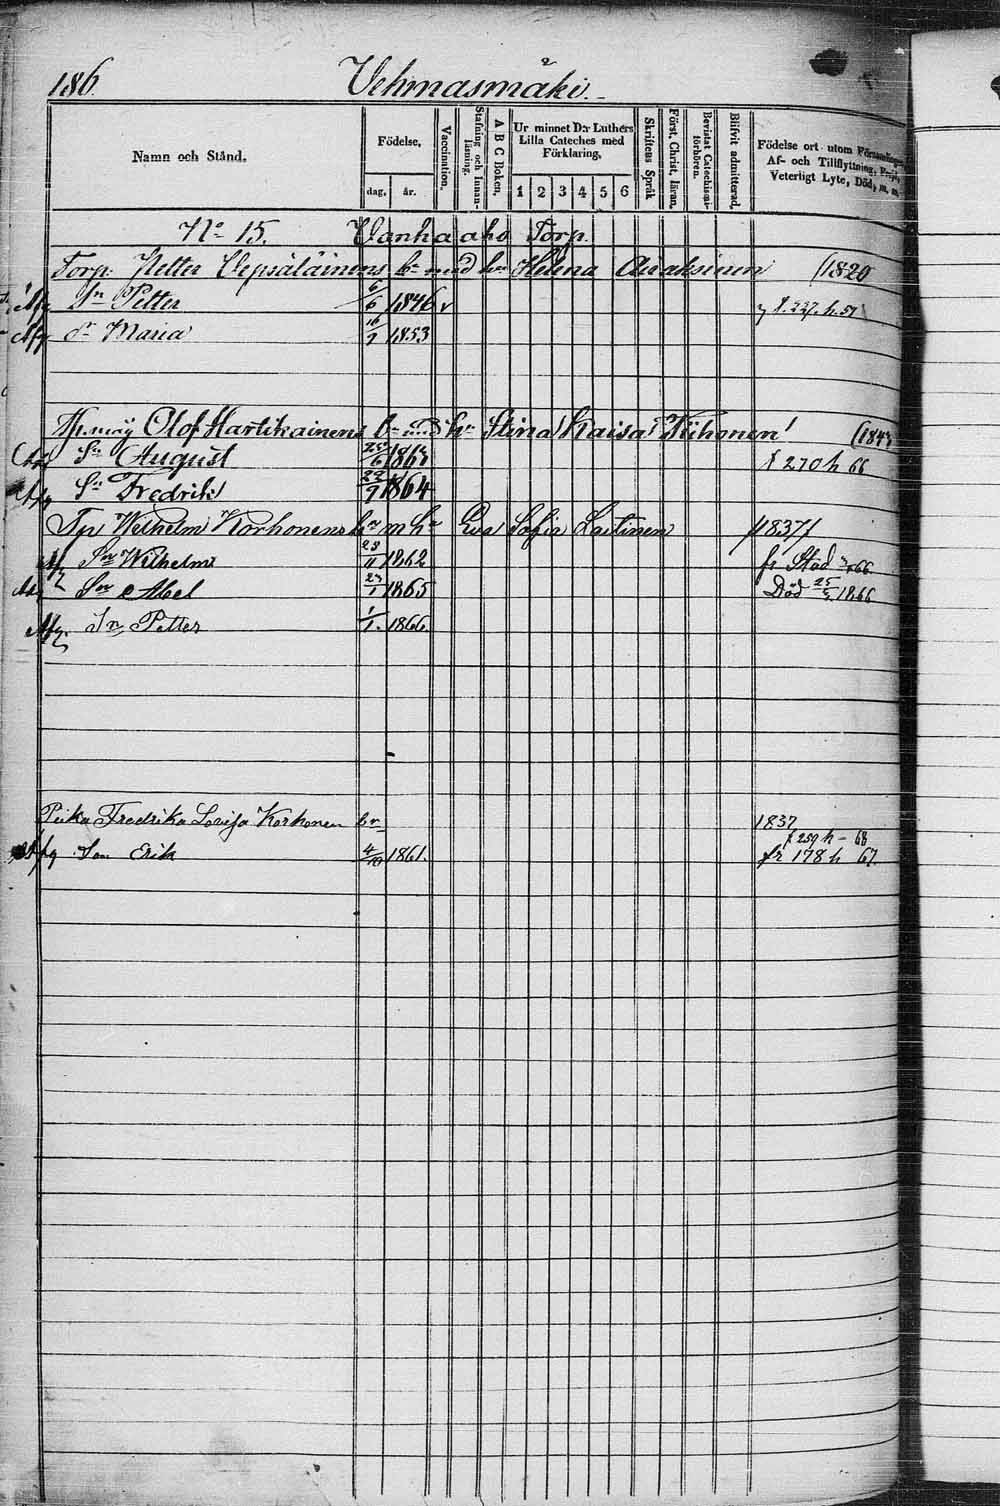 186.
Vehmasmäki.
Namn och Stånd.
Födelse,
dag.
år.
Vaccination.
Stafning och Innanläsning.
A B C Boken.
Ur minnet D:r Luthers Lilla Cateches med Förklaring.
1 2 3 4 5 6
Skriftens Språk
Först. Christ. läran.
Bevistat Catechismiförhören.
Blifvit admitterad.
Födelse ort utom Församlingen,
Af- och Tillflyttning, Frejd,
Veterligt Lyte, Död, m. m.
No 15. Vanha aho Torp.
Torp. Petter Vepsäläinens br med hu Helena Airaksinen (1820
Sn Petter 6/6 1846 v f. 227. h. 57
dr Maria 16/7 1853
Olof Hartikainens br med hu Stina Kaisa Tiihonen (1843
Sn August 25/6 1863 f 270 h 66
Sn Fredrik 22/7 1864
Tp Wilhelm Korhonens br m hu Eva Sofia Laitinen 1837
Sn Wilhelm 23/11 1862 fr Stad 66.
Sn Abel 27/1 1865 Död 25/5 1866
Sn Petter 1/1. 1866.
Piika Fredrika Lovisa Korhonen br 1837
f 259 h - 68
Son Erik 4/10 1861. fr 178 h 67.